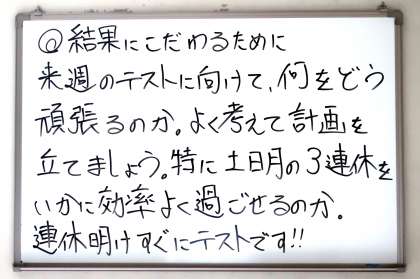 @結果にこだわるために
来週のテストに向けて、何をどう
頑張るのか。よく考えて計画を
立てましょう。特に土日月の3連休を
いかに効率よく過ごせるのか。
連休明けすぐにテストです!!